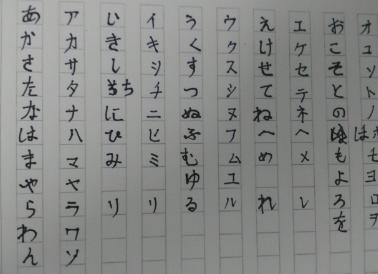 あかさたなはまやらわん
アカサタナハマヤラワン
いきしちにひみり
イキシチニヒミリ
うくすつぬふむゆる
ウクスツヌフムユル
えけせてねへめれ
エケセテネヘメレ
おこそとのほもよろを
オコソトノホモヨロヲ